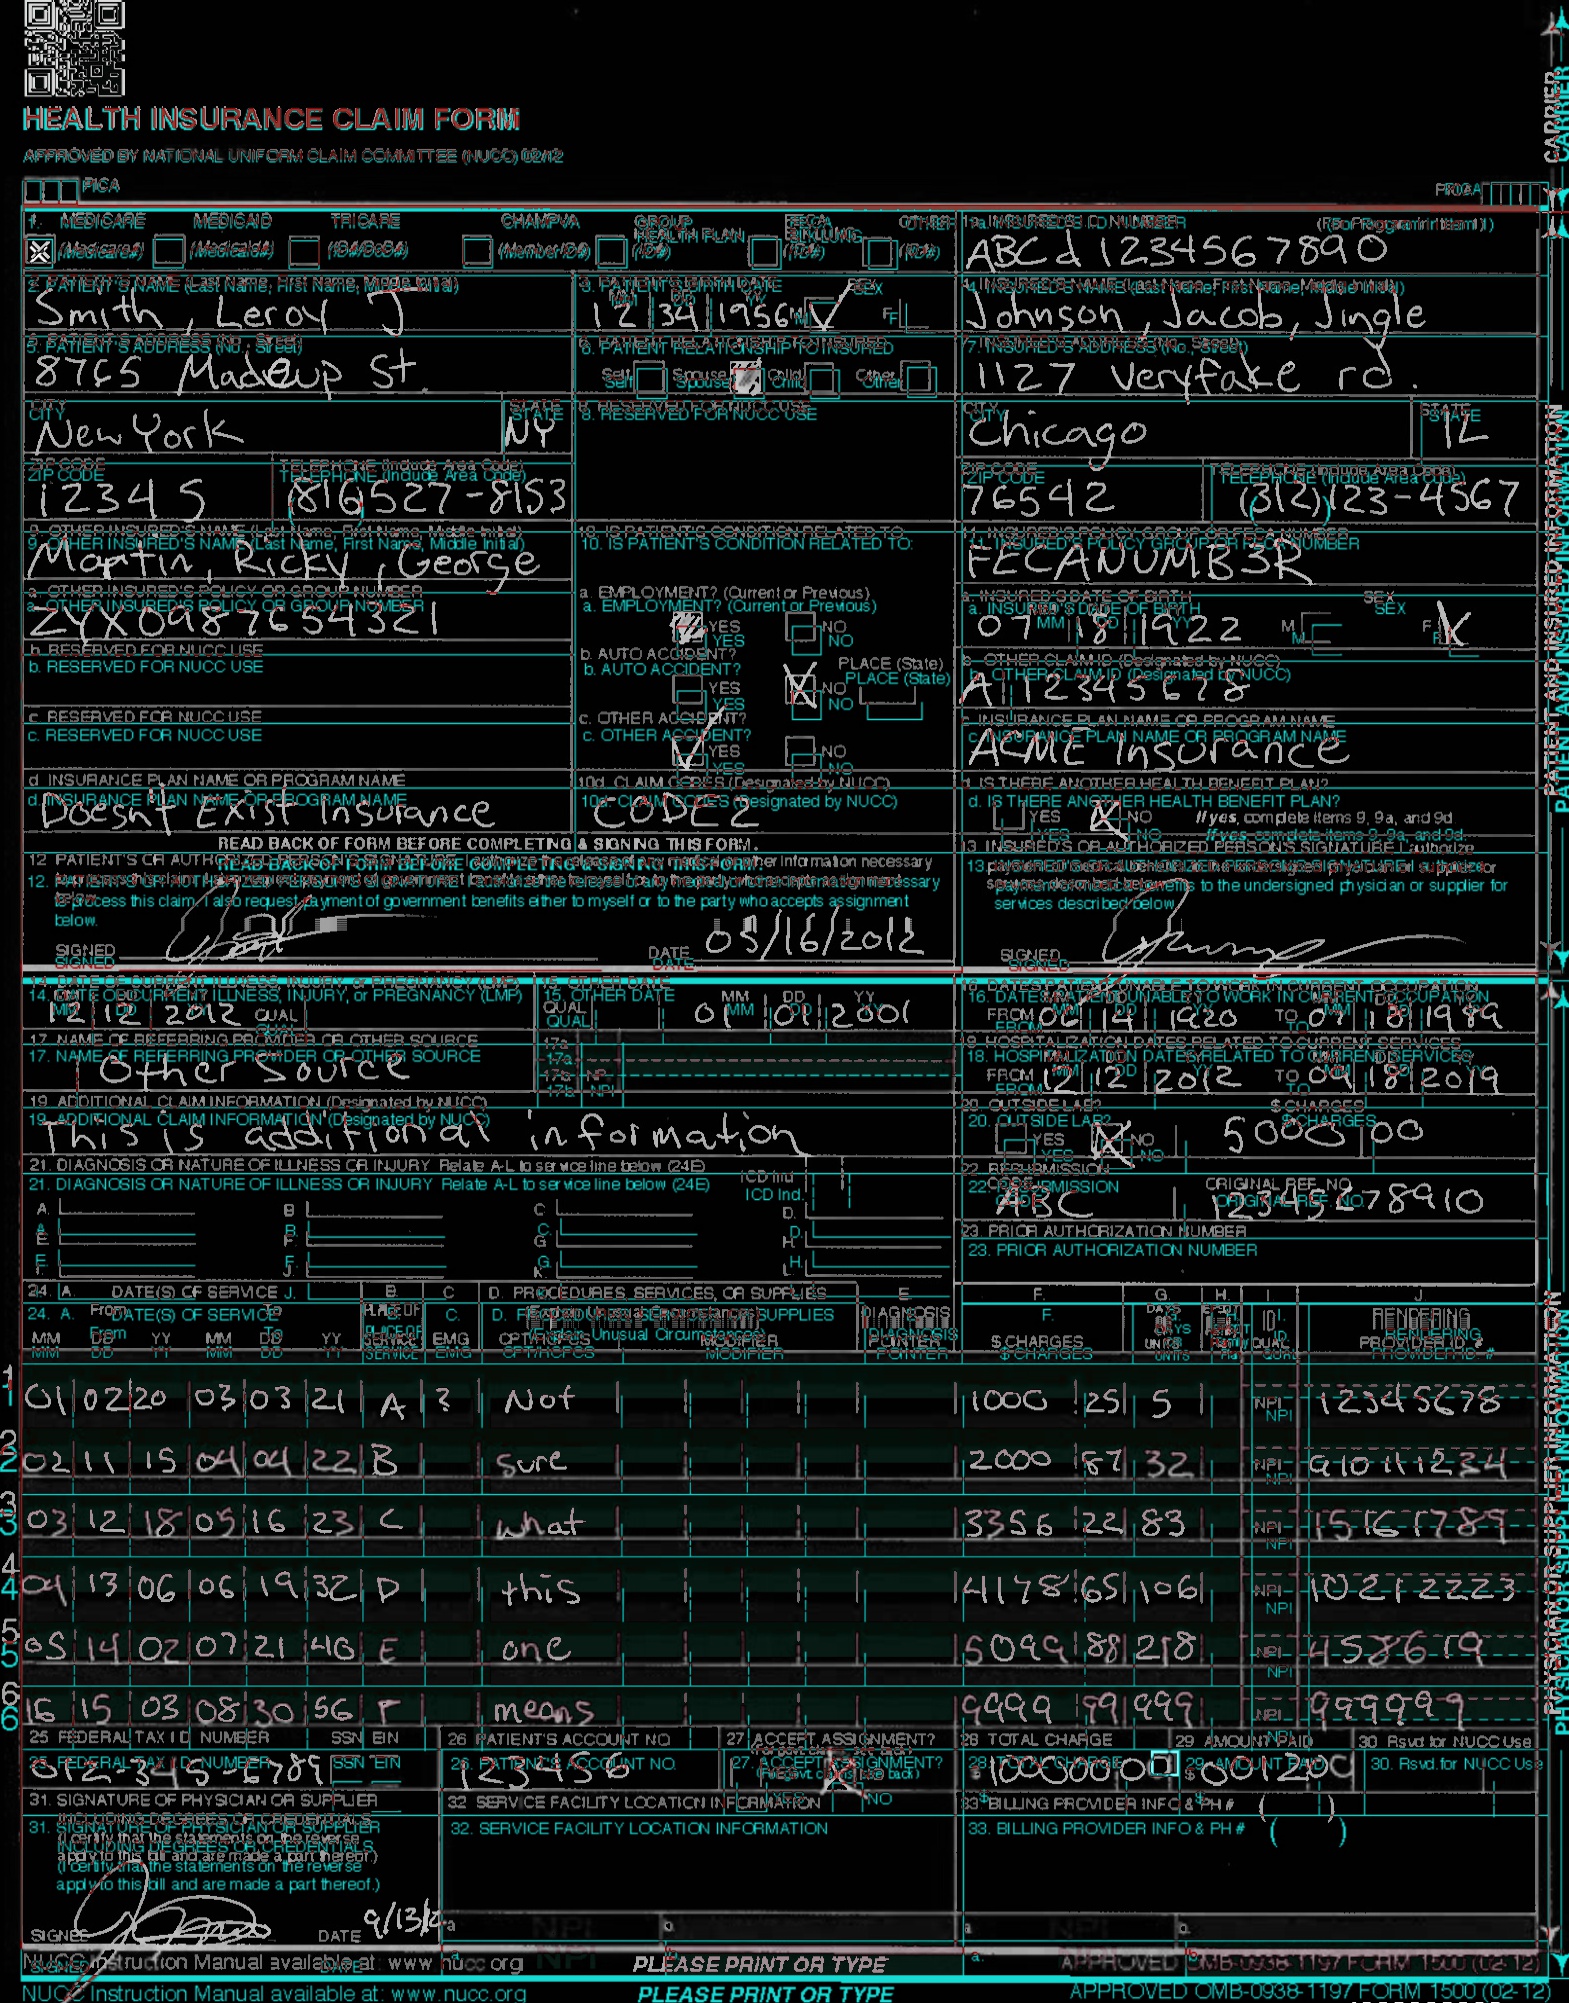 HEALTH INSURANCE CLAIM FORM
APPROVED BY NATIONAL UNIFORM CLAIM COMMITTEE (NUCC) 02/12
PICA
CARRIER
1. MEDICARE MEDICAID TRICARE CHAMPVA GROUP HEALTH PLAN FECA BLK LUNG OTHER
(Medicare#) (Medicaid#) (ID#/DoD#) (Member ID#) (ID#) (ID#) (ID#)
1a. INSURED'S I.D. NUMBER (For Program in Item 1)
ABCd 1234567890
2. PATIENT'S NAME (Last Name, First Name, Middle Initial)
Smith, Leroy J
3. PATIENT'S BIRTH DATE SEX
12 34 1956 M F
4. INSURED'S NAME (Last Name, First Name, Middle Initial)
Johnson, Jacob, Jingle
5. PATIENT'S ADDRESS (No., Street)
8765 Madeup St.
6. PATIENT RELATIONSHIP TO INSURED
Self Spouse Child Other
7. INSURED'S ADDRESS (No., Street)
1127 Veryfake rd.
CITY STATE
New York NY
8. RESERVED FOR NUCC USE
CITY STATE
Chicago IL
ZIP CODE TELEPHONE (Include Area Code)
12345 (816)527-8153
ZIP CODE TELEPHONE (Include Area Code)
76542 (312)123-4567
9. OTHER INSURED'S NAME (Last Name, First Name, Middle Initial)
Martin, Ricky, George
10. IS PATIENT'S CONDITION RELATED TO:
11. INSURED'S POLICY GROUP OR FECA NUMBER
FECANUMB3R
a. OTHER INSURED'S POLICY OR GROUP NUMBER
ZYX0987654321
a. EMPLOYMENT? (Current or Previous)
YES NO
a. INSURED'S DATE OF BIRTH SEX
07 18 1922 M F
b. RESERVED FOR NUCC USE
b. AUTO ACCIDENT? PLACE (State)
YES NO
b. OTHER CLAIM ID (Designated by NUCC)
A 12345678
c. RESERVED FOR NUCC USE
c. OTHER ACCIDENT?
YES NO
c. INSURANCE PLAN NAME OR PROGRAM NAME
ACME Insurance
d. INSURANCE PLAN NAME OR PROGRAM NAME
Doesn't Exist Insurance
10d. CLAIM CODES (Designated by NUCC)
CODE2
d. IS THERE ANOTHER HEALTH BENEFIT PLAN?
YES NO If yes, complete items 9, 9a, and 9d.
READ BACK OF FORM BEFORE COMPLETING & SIGNING THIS FORM.
12. PATIENT'S OR AUTHORIZED PERSON'S SIGNATURE I authorize the release of any medical or other information necessary
to process this claim. I also request payment of government benefits either to myself or to the party who accepts assignment
below.
SIGNED DATE 05/16/2012
13. INSURED'S OR AUTHORIZED PERSON'S SIGNATURE I authorize
payment of medical benefits to the undersigned physician or supplier for
services described below.
SIGNED
PATIENT AND INSURED INFORMATION
14. DATE OF CURRENT ILLNESS, INJURY, or PREGNANCY (LMP)
12 12 2012 QUAL.
15. OTHER DATE
QUAL. 01 01 2001
16. DATES PATIENT UNABLE TO WORK IN CURRENT OCCUPATION
FROM 06 14 1920 TO 07 18 1989
17. NAME OF REFERRING PROVIDER OR OTHER SOURCE
Other Source
17a.
17b. NPI
18. HOSPITALIZATION DATES RELATED TO CURRENT SERVICES
FROM 12 12 2012 TO 09 18 2019
19. ADDITIONAL CLAIM INFORMATION (Designated by NUCC)
This is additional information
20. OUTSIDE LAB? $ CHARGES
YES NO 5000 00
21. DIAGNOSIS OR NATURE OF ILLNESS OR INJURY Relate A-L to service line below (24E) ICD Ind.
A. B. C. D.
E. F. G. H.
I. J. K. L.
22. RESUBMISSION CODE ORIGINAL REF. NO.
ABC 12345678910
23. PRIOR AUTHORIZATION NUMBER
24. A. DATE(S) OF SERVICE B. C. D. PROCEDURES, SERVICES, OR SUPPLIES E. F. G. H. I. J.
From To PLACE OF SERVICE EMG (Explain Unusual Circumstances) DIAGNOSIS POINTER
MM DD YY MM DD YY CPT/HCPCS MODIFIER $ CHARGES DAYS UNITS ID. QUAL. RENDERING PROVIDER ID. #
1 01 02 20 03 03 21 A ? Not 1000 25 5 NPI 12345678
2 02 11 15 04 04 22 B sure 2000 87 32 NPI 910111234
3 03 12 18 05 16 23 C what 3356 22 83 NPI 15161789
4 04 13 06 06 19 32 D this 4178 65 106 NPI 10212223
5 05 14 02 07 21 40 E one 5099 88 218 NPI 458619
6 16 15 03 08 30 56 F means 9999 99 999 NPI 999999
25. FEDERAL TAX I.D. NUMBER SSN EIN
012345-6789
26. PATIENT'S ACCOUNT NO.
123456
27. ACCEPT ASSIGNMENT?
(For govt. claims, see back)
YES NO
28. TOTAL CHARGE
$
29. AMOUNT PAID
$
30. Rsvd for NUCC Use
31. SIGNATURE OF PHYSICIAN OR SUPPLIER
INCLUDING DEGREES OR CREDENTIALS
(I certify that the statements on the reverse
apply to this bill and are made a part thereof.)
SIGNED DATE 9/13/12
32. SERVICE FACILITY LOCATION INFORMATION
a. NPI b.
33. BILLING PROVIDER INFO & PH # ( )
a. NPI b.
PHYSICIAN OR SUPPLIER INFORMATION
NUCC Instruction Manual available at: www.nucc.org PLEASE PRINT OR TYPE APPROVED OMB-0938-1197 FORM 1500 (02-12)